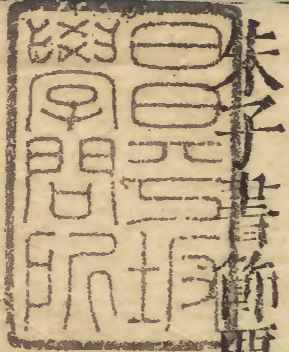 朱子書節要
昌平坂
學問所